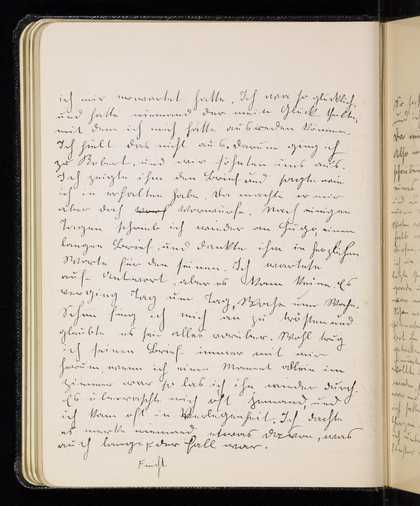 ich mir erwartet hatte. Ich war so glücklich,
und hatte niemand der mein Glück theilte,
mit dem ich mich hätte ausreden können.
Ich hielt das nicht aus. Darum ging ich
zu Robert, und wir söhnten uns aus.
Ich zeigte ihm den Brief und sagte wie
ich ihn erhalten habe. Da machte er mir
aber doch Vorwürfe. Nach einigen
Tagen schrieb ich wieder an Hugo, einen
langen Brief, und dankte ihm in herzlichen
Worte für den seinen. Ich wartete
auf Antwort, aber es kam keine. Es
verging Tag um Tag, Woche um Woche.
Schon fing ich mich an zu trösten und
glaubte es sei alles vorüber. Wohl trug
ich seinen Brief immer mit mir
herum wenn ich einen Moment allein im
Zimmer war so las ich ihn wieder durch.
Es überraschte mich oft jemand, und
ich kam oft in Verlegenheit. Ich dachte
es merke niemand etwas davon, was
auch lange der Fall war.